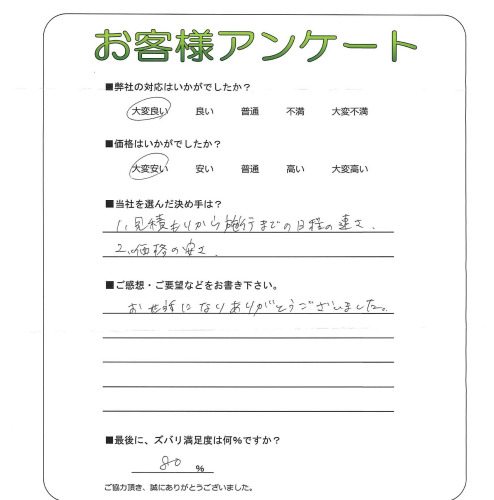 お客様アンケート
■弊社の対応はいかがでしたか？
大変良い 良い 普通 不満 大変不満
■価格はいかがでしたか？
大変安い 安い 普通 高い 大変高い
■当社を選んだ決め手は？
1、見積もりから施行までの日程の速さ。
2、価格の安さ
■ご感想・ご要望などをお書き下さい。
お世話になりありがとうございました。
■最後に、ズバリ満足度は何%ですか？
80 %
ご協力頂き、誠にありがとうございました。